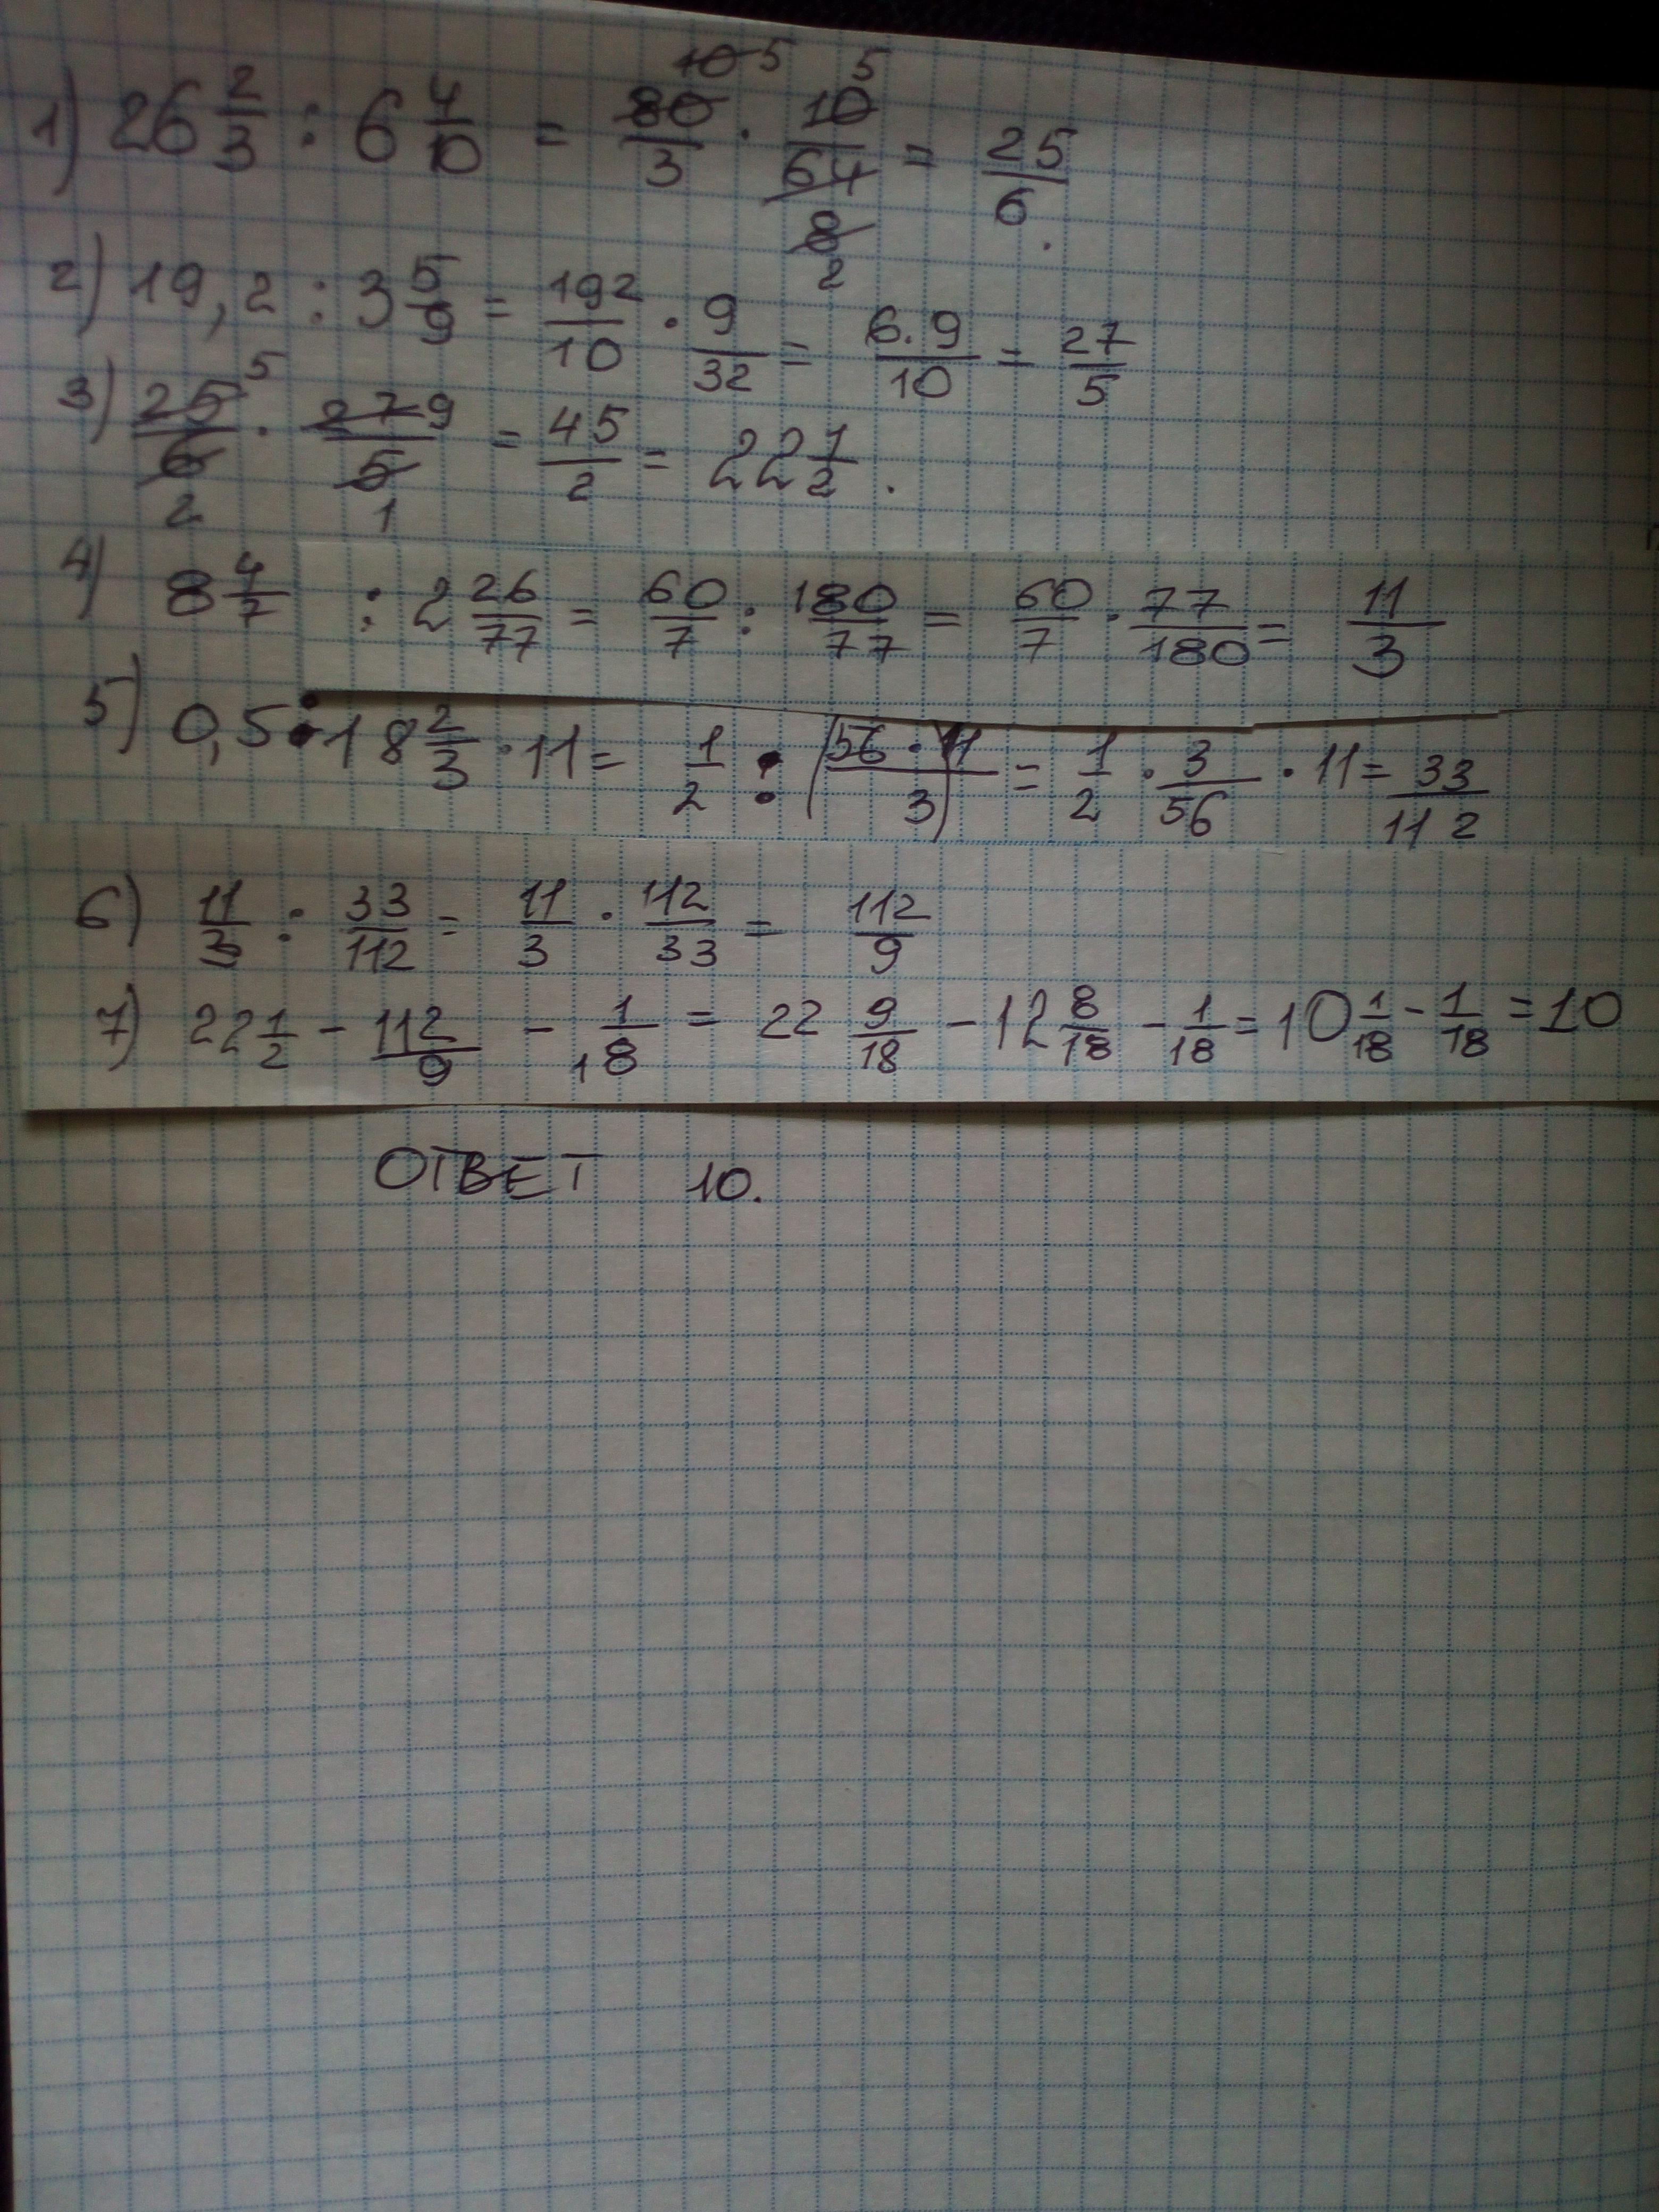 1) 26 2/3 : 6 4/10 = 80/3 · 10/64 = 25/6.
10 5 5
8
2
2) 19,2 : 3 5/9 = 192/10 · 9/32 = 6·9/10 = 27/5
3) 25/6 · 27/5 = 45/2 = 22 1/2.
5 9
2 1
4) 8 4/7 : 2 26/77 = 60/7 : 180/77 = 60/7 · 77/180 = 11/3
5) 0,5 : 18 2/3 · 11 = 1/2 : (56·11/3) = 1/2 · 3/56 · 11 = 33/112
6) 11/3 : 33/112 = 11/3 · 112/33 = 112/9
7) 22 1/2 - 112/9 - 1/18 = 22 9/18 - 12 8/18 - 1/18 = 10 1/18 - 1/18 = 10
ОТВЕТ 10.